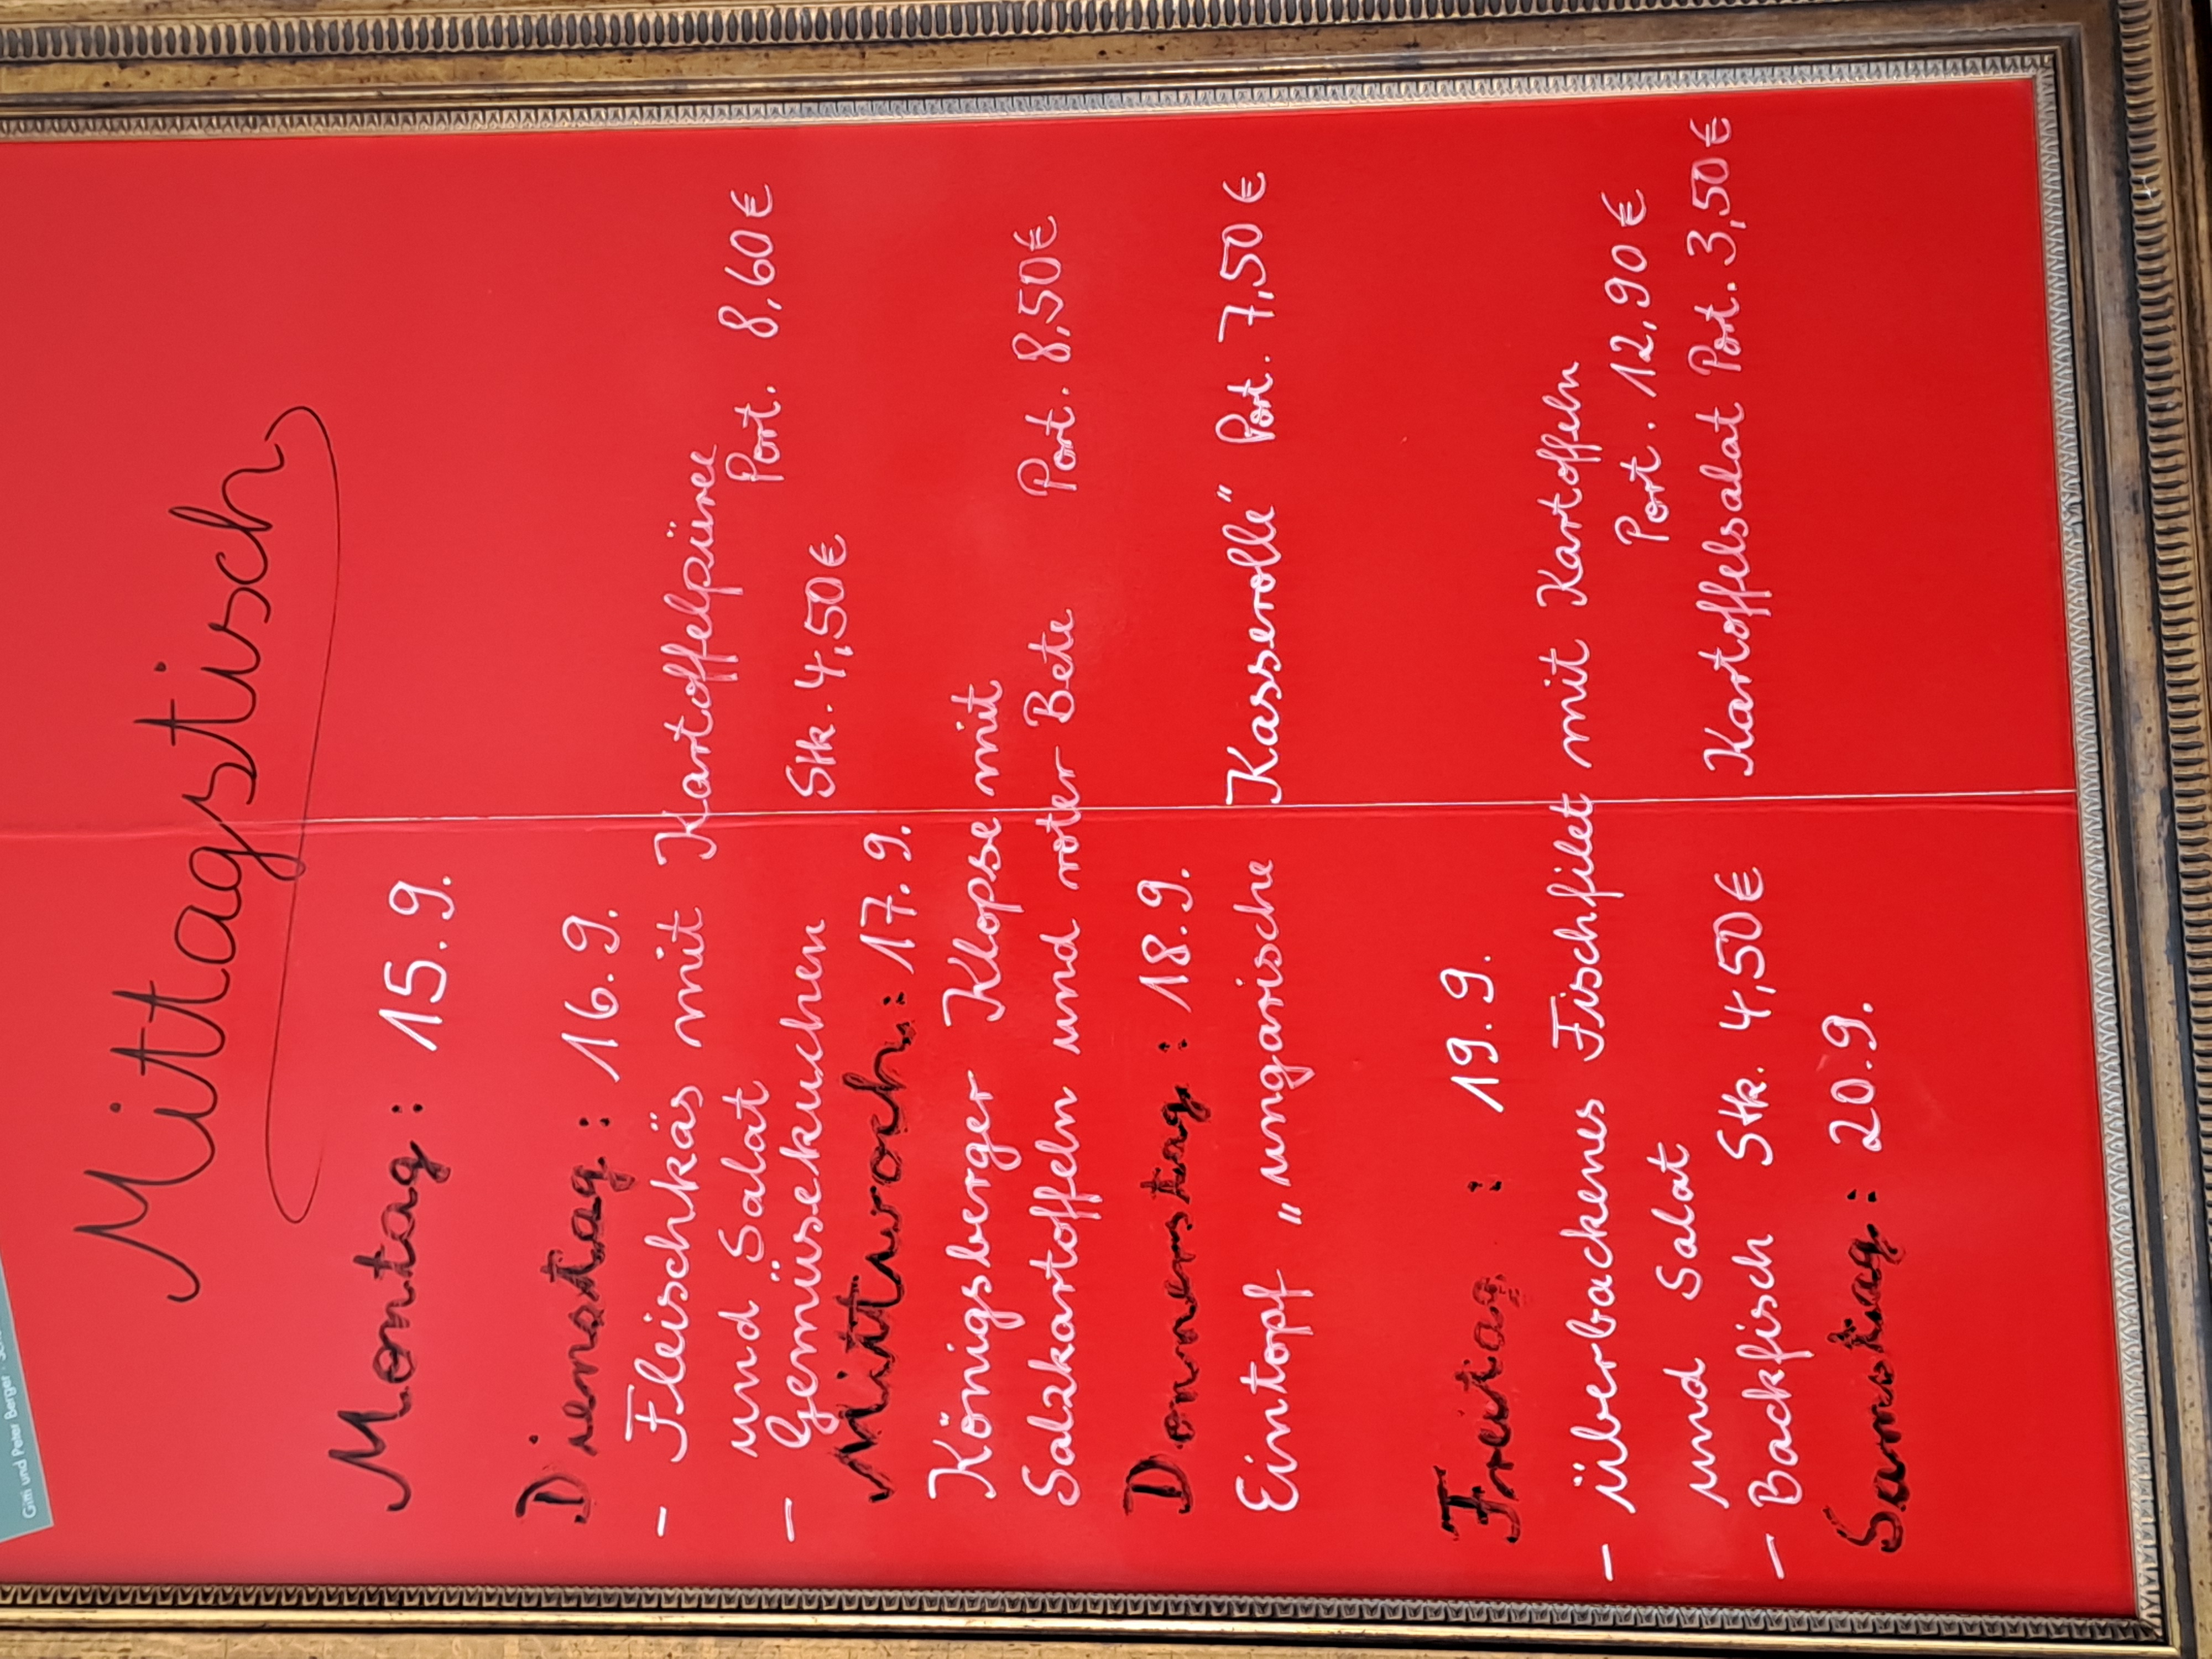 Gitti und Peter Berger
Mittagstisch
Montag: 15.9.
Dienstag: 16.9.
- Fleischkäs mit Kartoffelpüree
und Salat Port. 8,60€
- Gemüsekuchen Stk. 4,50€
Mittwoch: 17.9.
Königsberger Klopse mit
Salzkartoffeln und roter Bete Port. 8,50€
Donnerstag: 18.9.
Eintopf „ungarische Kasserolle" Port. 7,50€
Freitag: 19.9.
- überbackenes Fischfilet mit Kartoffeln
und Salat Port. 12,90€
- Backfisch Stk. 4,50€ Kartoffelsalat Port. 3,50€
Samstag: 20.9.